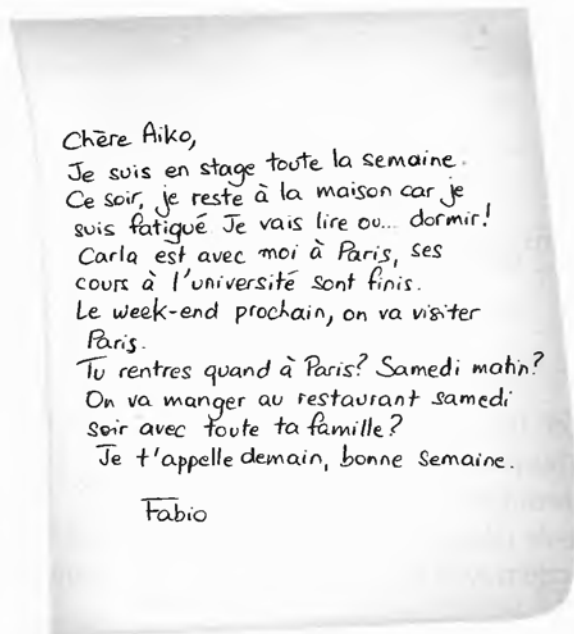 Chère Aiko,
Je suis en stage toute la semaine.
Ce soir, je reste à la maison car je
suis fatigué Je vais lire ou... dormir!
Carla est avec moi à Paris, ses
cours à l'université sont finis.
Le week-end prochain, on va visiter
Paris.
Tu rentres quand à Paris? Samedi matin?
On va manger au restaurant samedi
soir avec toute ta famille?
Je t'appelle demain, bonne semaine.
Fabio